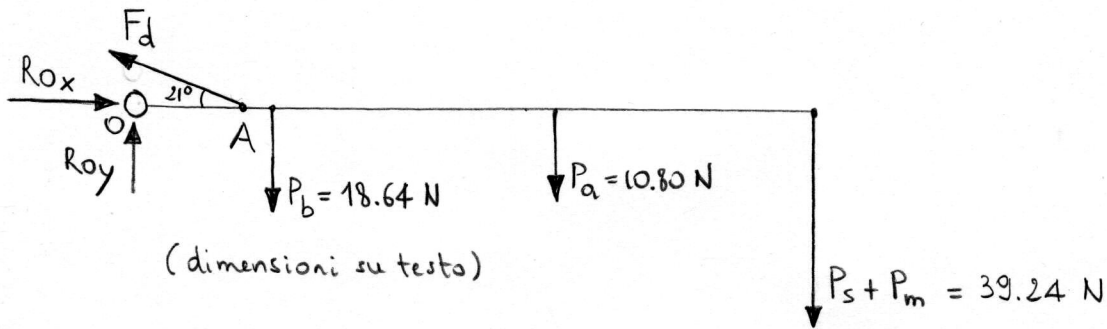 Fd
Rox
21°
O
A
Roy
Pb = 18.64 N
Pa = 10.80 N
(dimensioni su testo)
Ps + Pm = 39.24 N